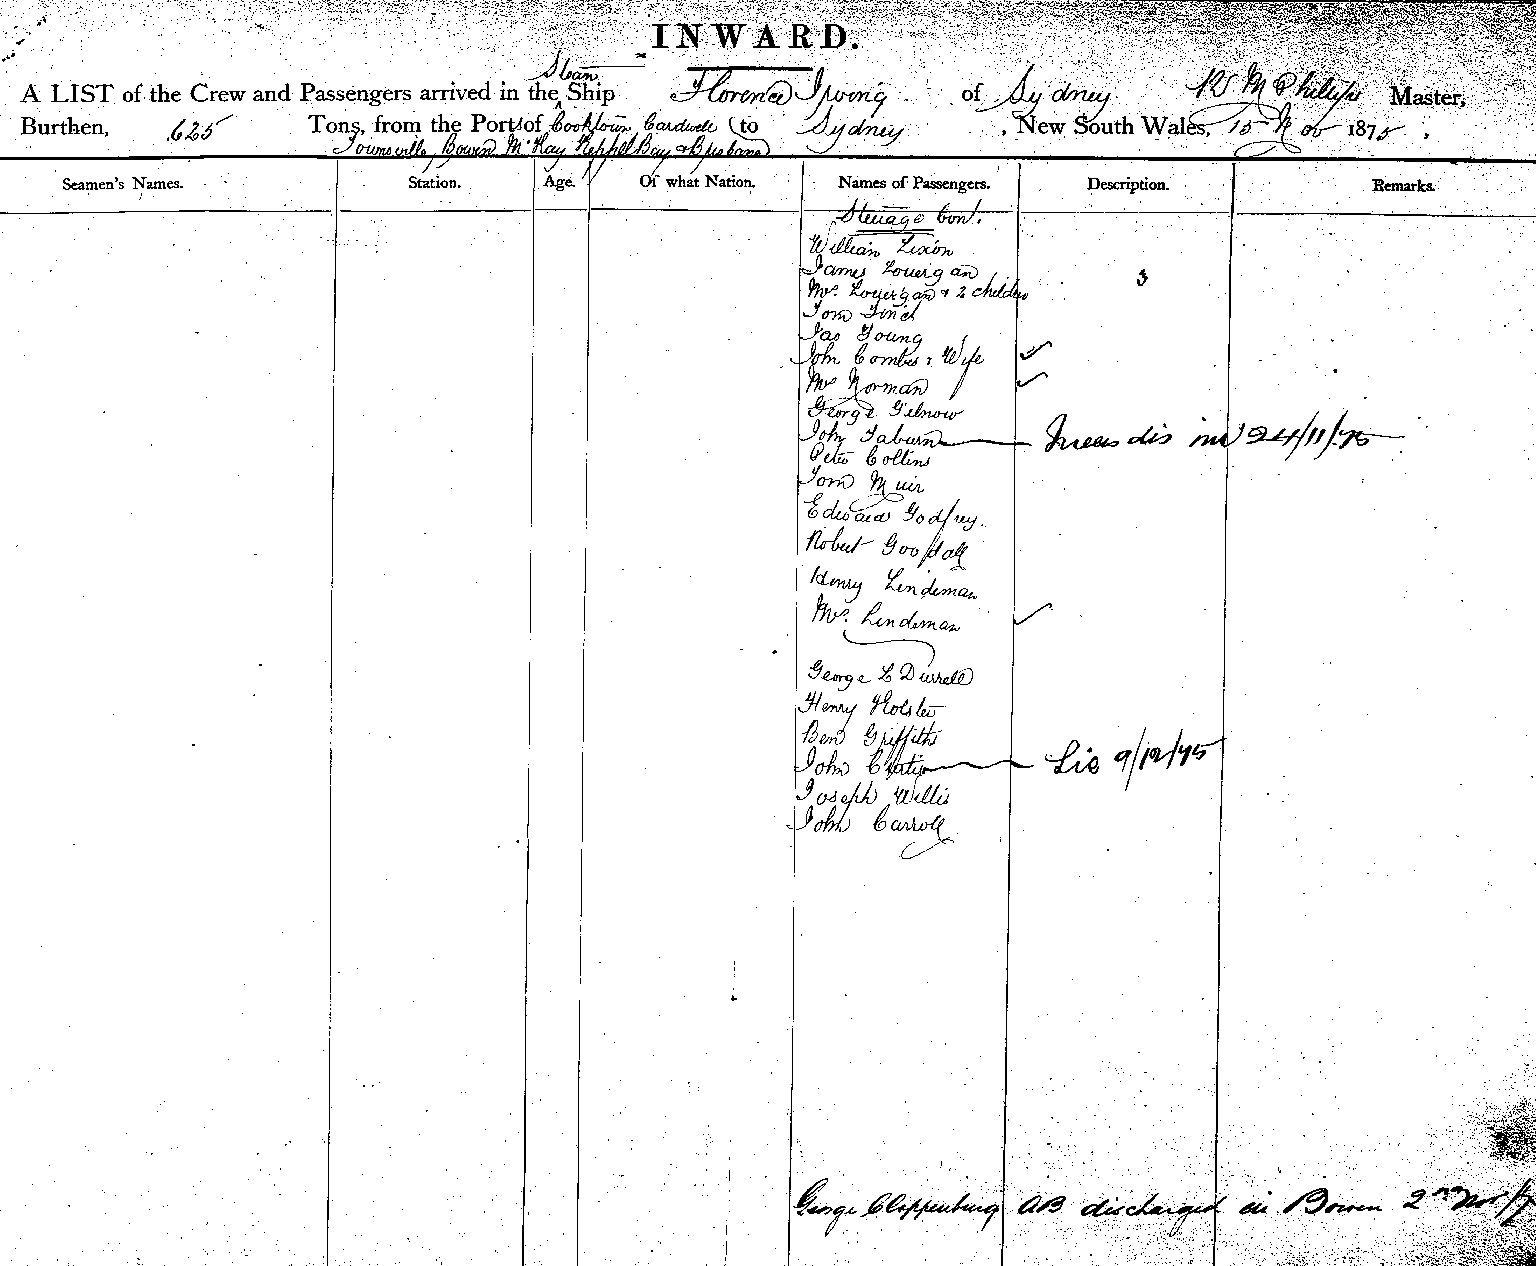 INWARD.
Steam
A LIST of the Crew and Passengers arrived in the Ship Florence Irving of Sydney Master,
Burthen, 625 Tons, from the Ports of Cooktown Cardwell to Sydney, New South Wales, 15 Nov 1875.
Townsville, Bowen McKay Keppel Bay & Brisbane
Seamen's Names. Station. Age. Of what Nation. Names of Passengers. Description. Remarks.
Steerage Cont.
William Lixon
James Lonergan 3
Mrs. Lonergan & 2 children
Tom Finch
Jas Young
John Combes & Wife ✓
Mrs Norman ✓
George Gilnow
John Taburn dis 24/11/75
Peter Collins
Tom Muir
Edward Godfrey.
Robert Goodall
Henry Lindeman
Mrs. Lindeman ✓
George L Durrell
Henry Holster
Ben Griffiths
John 9/12/75
Joseph Willis
John Carroll
George Clappenburg AB discharged in Bowen 2nd Nov